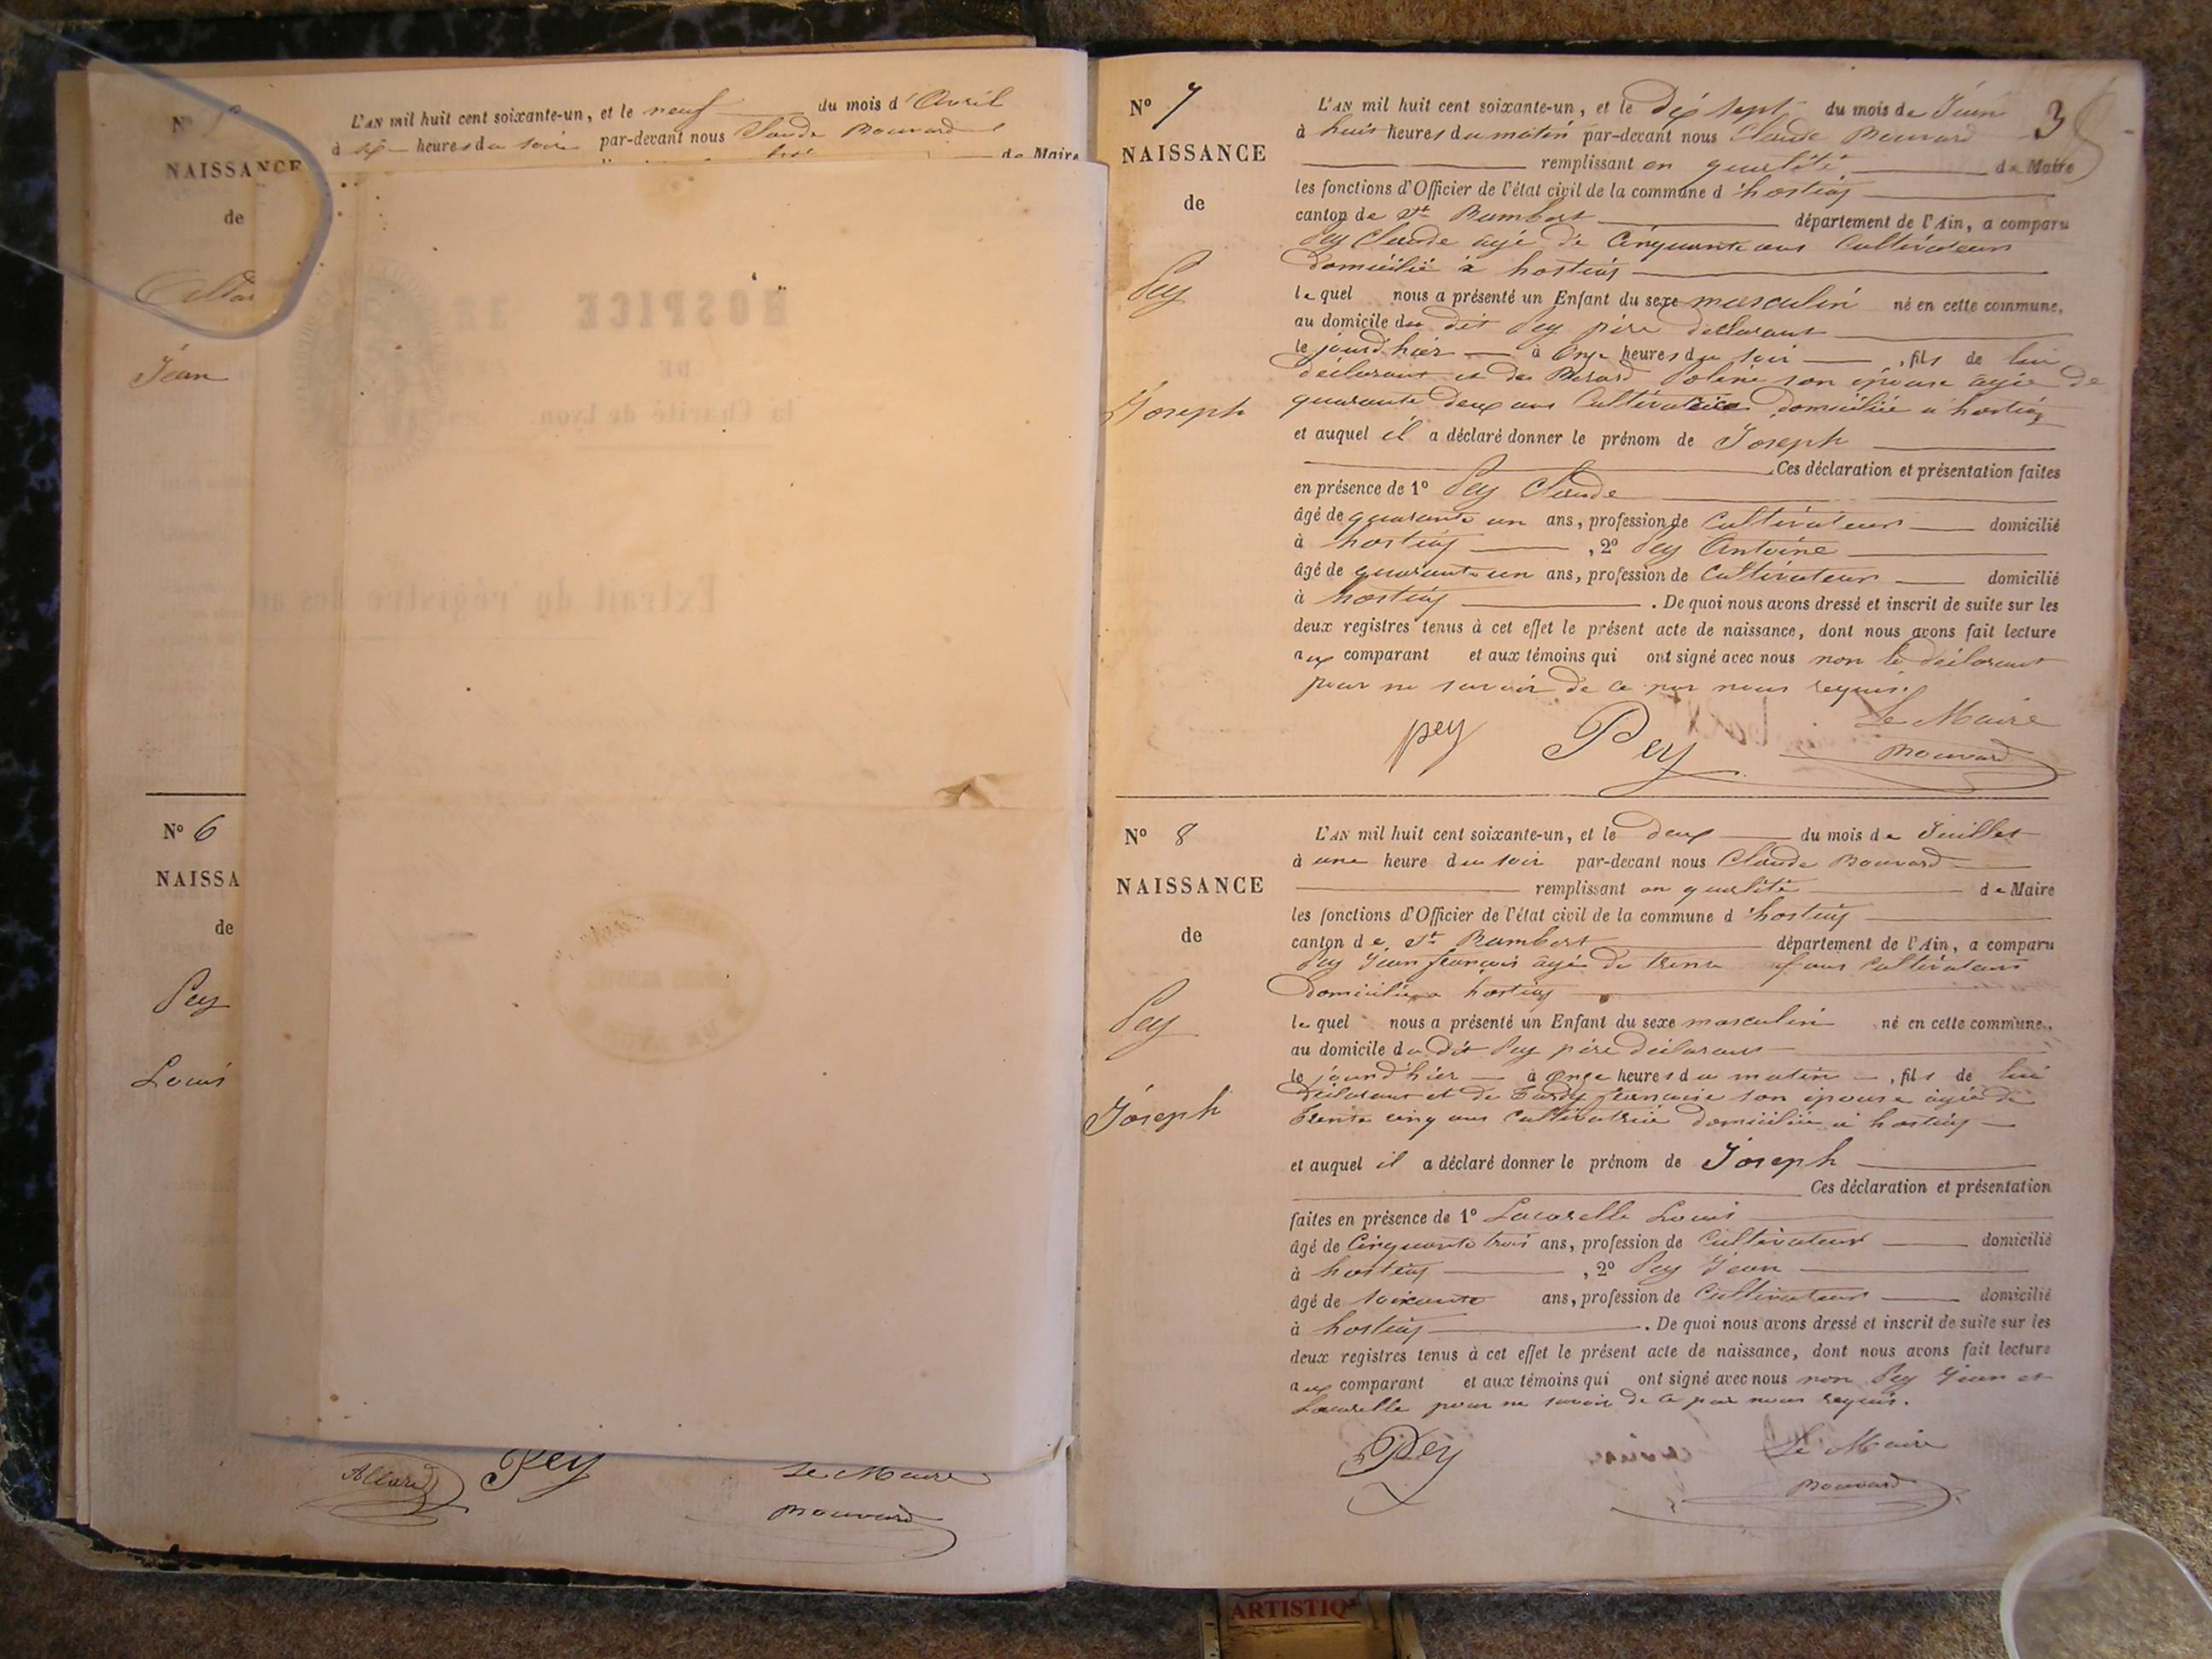 NAISSANCE
de
Jean
L'AN mil huit cent soixante-un, et le neuf du mois d'Avril
à six heures du soir par-devant nous Claude Bouvard
de Maire
HOSPICE
DE
la Charité de Lyon
Extrait du régistre des ac
N° 6
NAISSA
de
Pey
Louis
Allard Pey Le Maire
Bouvard
3
N° 7
NAISSANCE
de
Pey
Joseph
L'AN mil huit cent soixante-un, et le dix sept du mois de Juin
à huit heures du matin par-devant nous Claude Bouvard
remplissant en qualité de Maire
les fonctions d'Officier de l'état civil de la commune d'hostiaz
canton de St Rambert département de l'Ain, a comparu
Pey Claude agé de Cinquante ans Cultivateur
domicilié à hostiaz
le quel nous a présenté un Enfant du sexe masculin né en cette commune,
au domicile du dit Pey père declarant
le jourd'hier à Onze heures du soir, fils de lui
déclarant et de Berard son épouse agée de
quarante deux ans Cultivatrice domiciliée a hostiaz
et auquel il a déclaré donner le prénom de Joseph
Ces déclaration et présentation faites
en présence de 1° Pey Claude
âgé de quarante un ans, profession de Cultivateur domicilié
à hostiaz, 2° Pey Antoine
âgé de quarante un ans, profession de Cultivateur domicilié
à hostiaz. De quoi nous avons dressé et inscrit de suite sur les
deux registres tenus à cet effet le présent acte de naissance, dont nous avons fait lecture
aux comparant et aux témoins qui ont signé avec nous non le déclarant
pour ne savoir de ce par nous requis.
pey Pey Le Maire
Bouvard
N° 8
NAISSANCE
de
Pey
Joseph
L'AN mil huit cent soixante-un, et le deux du mois de Juillet
à une heure du soir par-devant nous Claude Bouvard
remplissant en qualité de Maire
les fonctions d'Officier de l'état civil de la commune d'hostiaz
canton de St Rambert département de l'Ain, a comparu
Pey Jean françois agé de trente ans Cultivateur
domicilié a hostiaz
le quel nous a présenté un Enfant du sexe masculin né en cette commune,
au domicile du dit Pey père déclarant
le jourd'hier à onze heures du matin, fils de lui
déclarant et de Tardy françoise son épouse agée de
trente cinq ans Cultivatrice domiciliée a hostiaz
et auquel il a déclaré donner le prénom de Joseph
Ces déclaration et présentation
faites en présence de 1° Lacorelle Louis
âgé de Cinquante trois ans, profession de Cultivateur domicilié
à hostiaz, 2° Pey Jean
âgé de soixante ans, profession de Cultivateur domicilié
à hostiaz. De quoi nous avons dressé et inscrit de suite sur les
deux registres tenus à cet effet le présent acte de naissance, dont nous avons fait lecture
aux comparant et aux témoins qui ont signé avec nous non Pey Jean et
Lacorelle pour ne savoir de ce par nous requis.
Pey Le Maire
Bouvard
ARTISTIQ